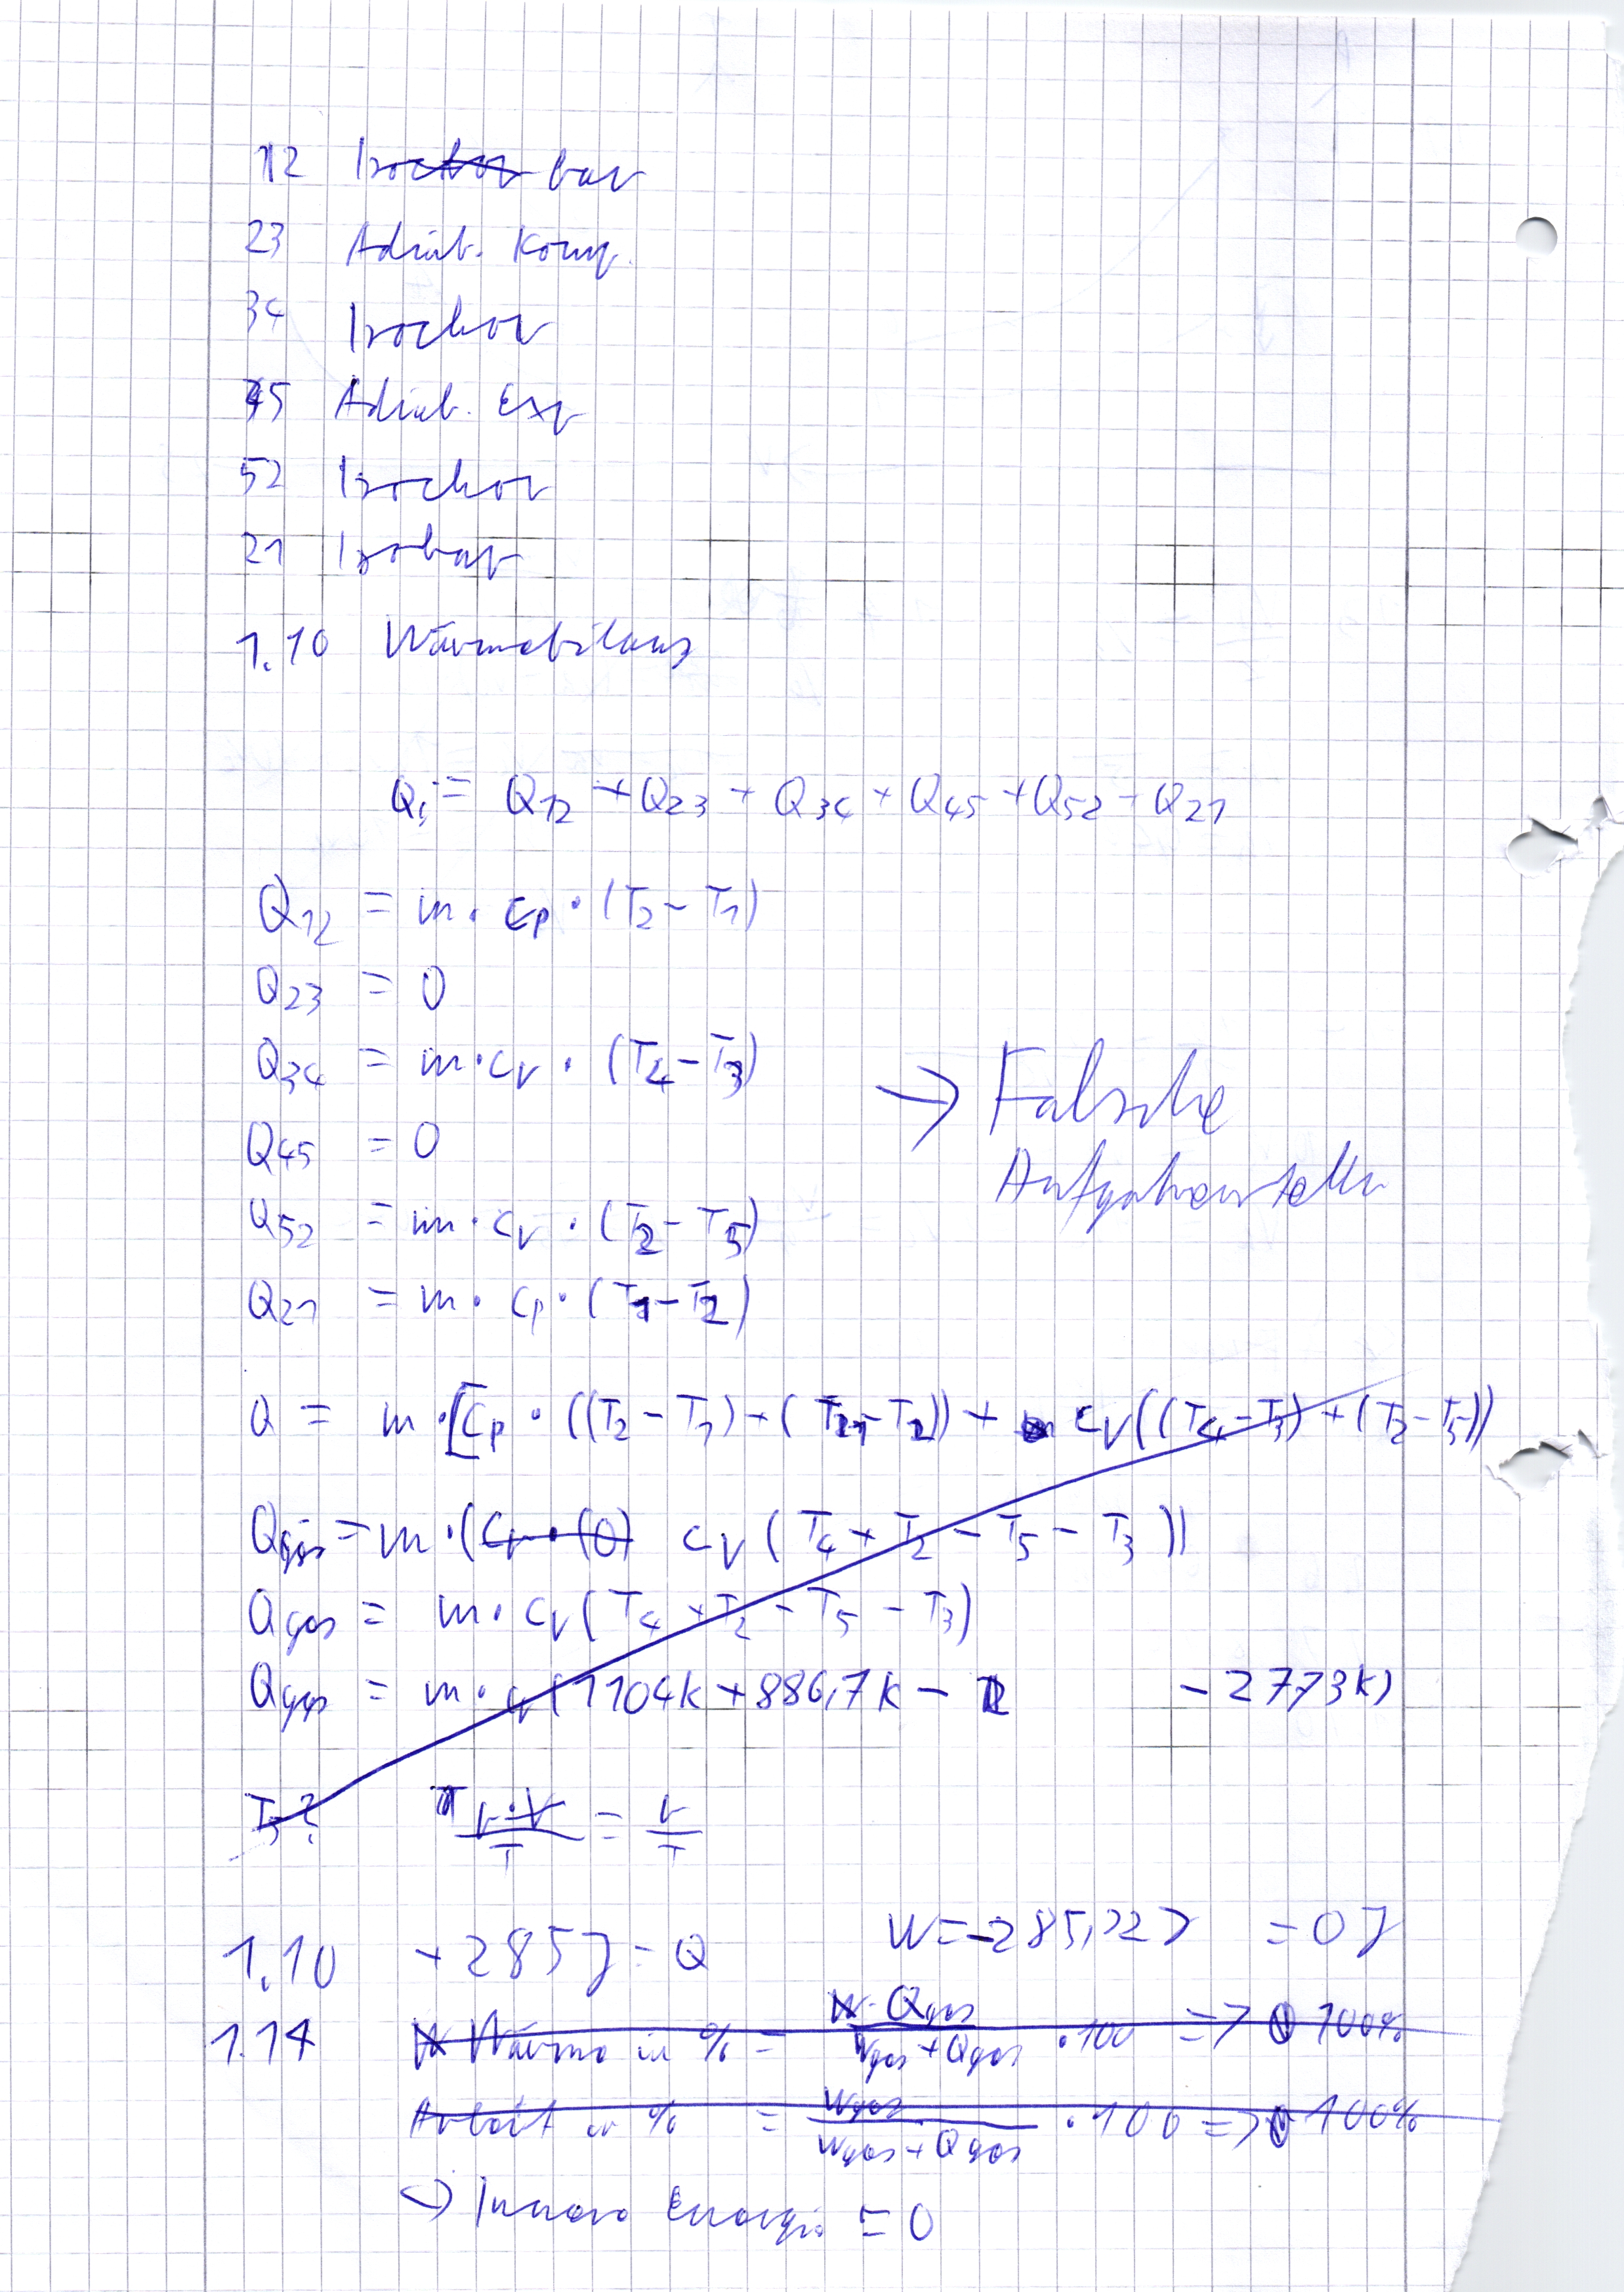 12 Isochor bar
23 Adiab. Komp.
34 Isochor
45 Adiab. Exp
52 Isochor
21 Isobar
1.10 Wärmebilanz
Qi = Q12 + Q23 + Q34 + Q45 + Q52 + Q21
Q12 = m · cp · (T2 - T1)
Q23 = 0
Q34 = m · cv · (T4 - T3)
→ Falsche
Q45 = 0
Aufgabenstelle
Q52 = m · cv · (T2 - T5)
Q21 = m · cp · (T1 - T2)
Q = m · [cp · ((T2 - T1) + (T1 - T2)) + cv((T4 - T3) + (T2 - T5))
Qges = m · (cp · (0) cv (T4 + T2 - T5 - T3))
Qges = m · cv (T4 + T2 - T5 - T3)
Qges = m · cv (1104K + 886,7K - - 2773K)
T5? p·V/T = p/T
1.10 + 285J = Q W = -285,22J = 0J
1.14 Wärme in % = Qges / Wges + Qges · 100 => 100%
Arbeit in % = Wges / Wges + Qges · 100 => 100%
↪ Innere Energie = 0